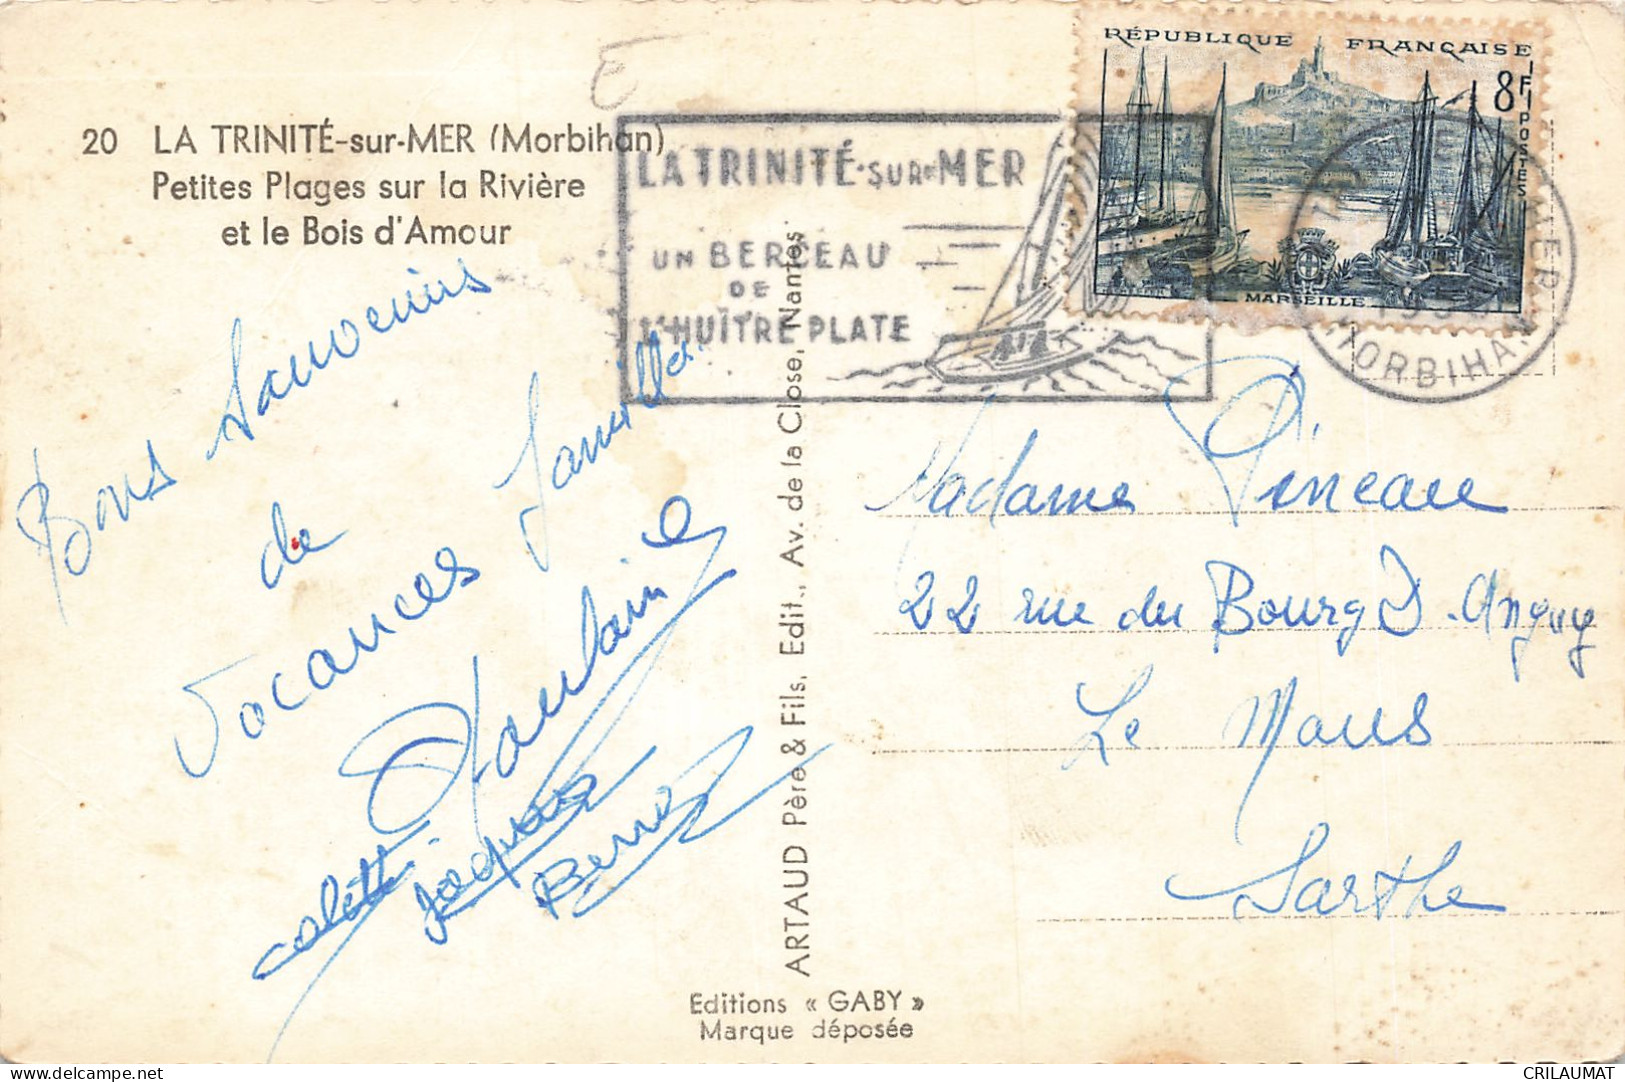 20 LA TRINITÉ-sur-MER (Morbihan)
Petites Plages sur la Rivière
et le Bois d'Amour
LA TRINITÉ-SUR-MER
UN BERCEAU
DE
L'HUÎTRE PLATE
RÉPUBLIQUE FRANÇAISE
8F
POSTES
MARSEILLE
MORBIHAN
Bons Souvenirs
de
Vacances
Famille
Colette
Jacques
Madame Pineau
22 rue du Bourg D. Anguy
Le Mans
Sarthe
ARTAUD Père & Fils, Edit., Av. de la Close, Nantes
Editions « GABY »
Marque déposée
CRILAUMAT